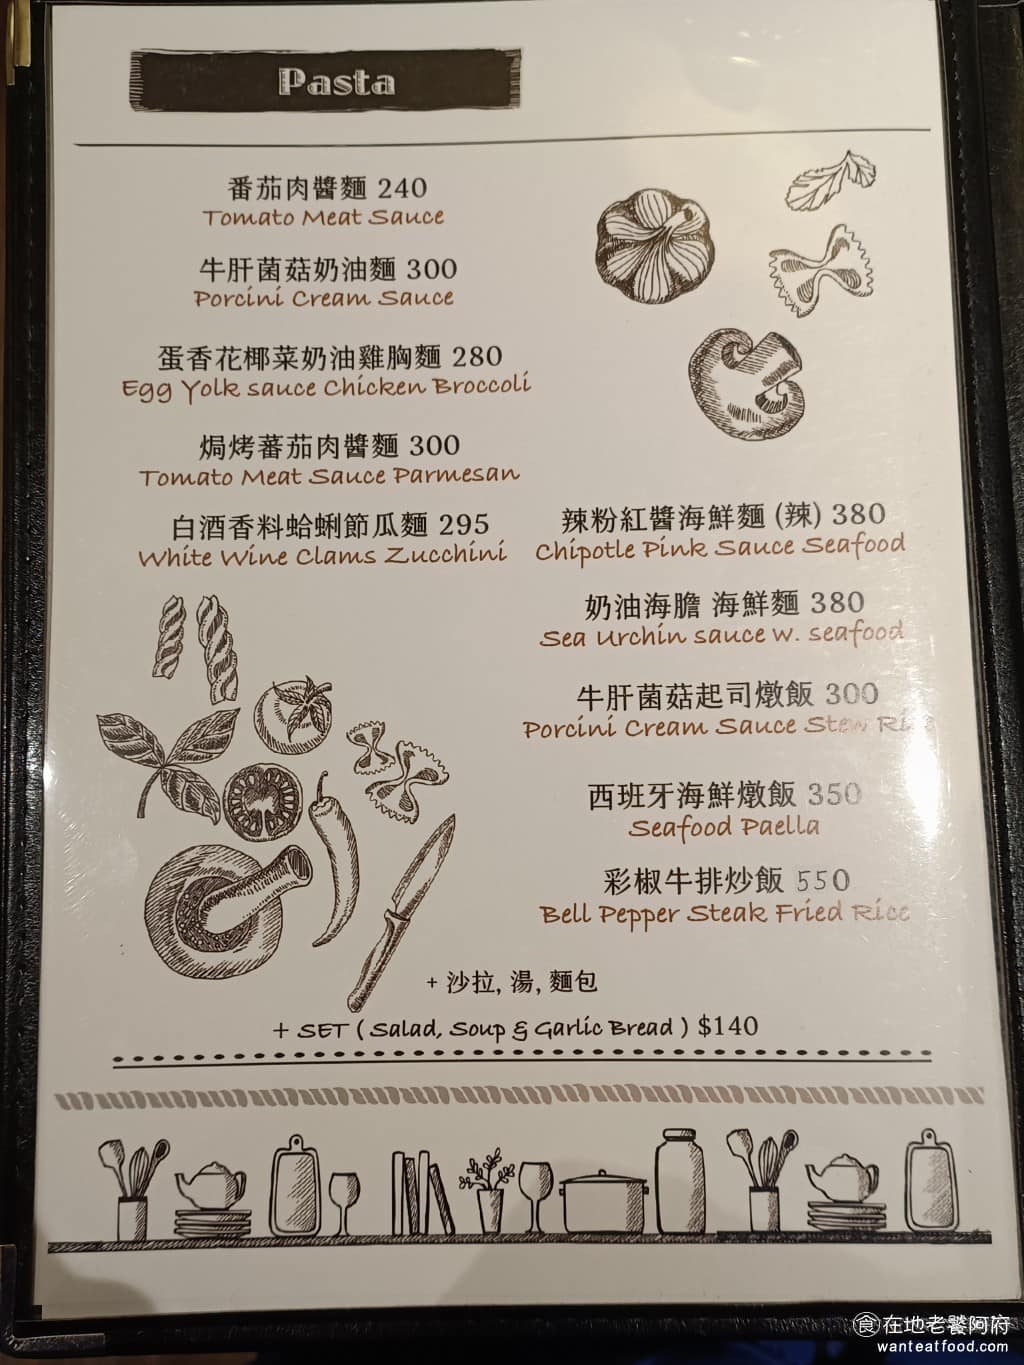 Pasta
番茄肉醬麵 240
Tomato Meat Sauce
牛肝菌菇奶油麵 300
Porcini Cream Sauce
蛋香花椰菜奶油雞胸麵 280
Egg Yolk sauce Chicken Broccoli
焗烤蕃茄肉醬麵 300
Tomato Meat Sauce Parmesan
白酒香料蛤蜊節瓜麵 295
White Wine Clams Zucchini
辣粉紅醬海鮮麵 (辣) 380
Chipotle Pink Sauce Seafood
奶油海膽 海鮮麵 380
Sea Urchin sauce w. seafood
牛肝菌菇起司燉飯 300
Porcini Cream Sauce Stew
西班牙海鮮燉飯 350
Seafood Paella
彩椒牛排炒飯 550
Bell Pepper Steak Fried Rice
+ 沙拉, 湯, 麵包
+ SET ( Salad, Soup & Garlic Bread ) $140
食在地老饕阿府
wanteatfood.com